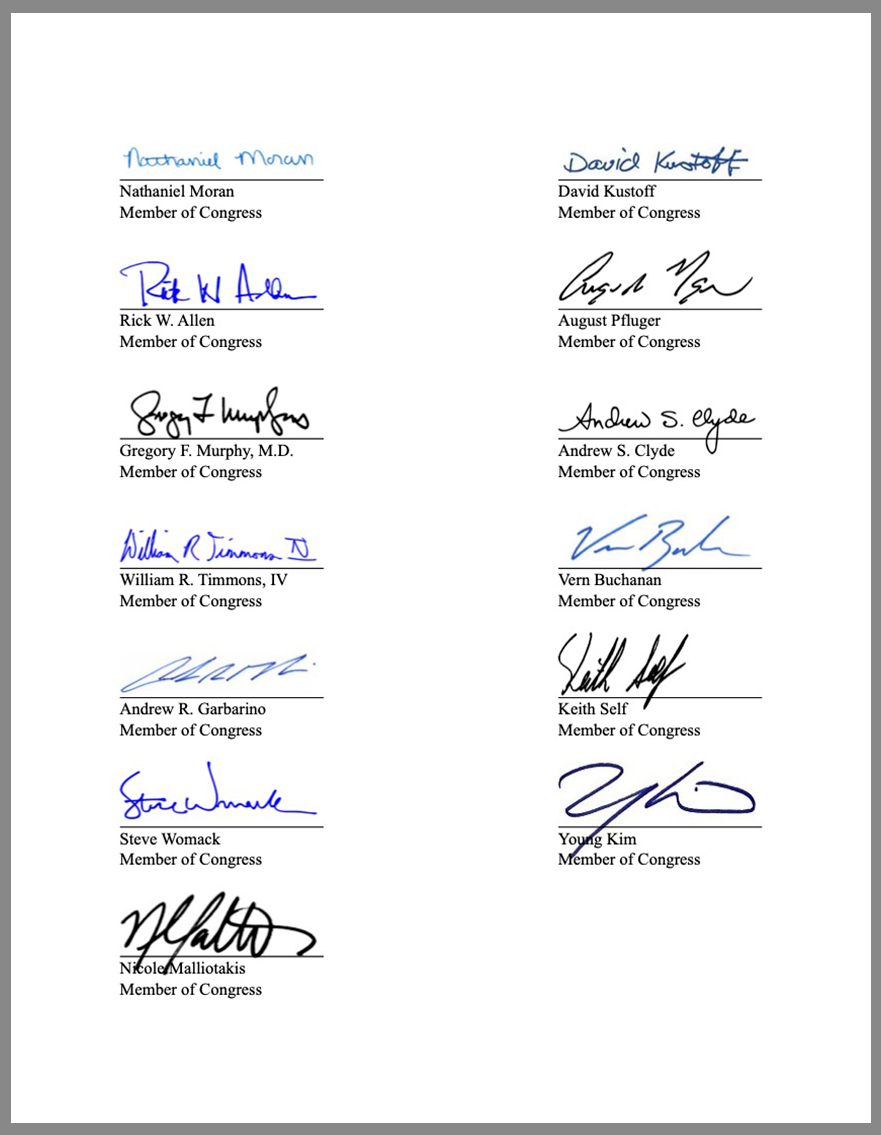 Nathaniel Moran
Nathaniel Moran
Member of Congress
David Kustoff
David Kustoff
Member of Congress
Rick W Allen
Rick W. Allen
Member of Congress
August Pfluger
Member of Congress
Gregory F. Murphy, M.D.
Member of Congress
Andrew S. Clyde
Andrew S. Clyde
Member of Congress
William R Timmons IV
William R. Timmons, IV
Member of Congress
Vern Buchanan
Member of Congress
Andrew R. Garbarino
Member of Congress
Keith Self
Keith Self
Member of Congress
Steve Womack
Steve Womack
Member of Congress
Young Kim
Member of Congress
Nicole Malliotakis
Member of Congress